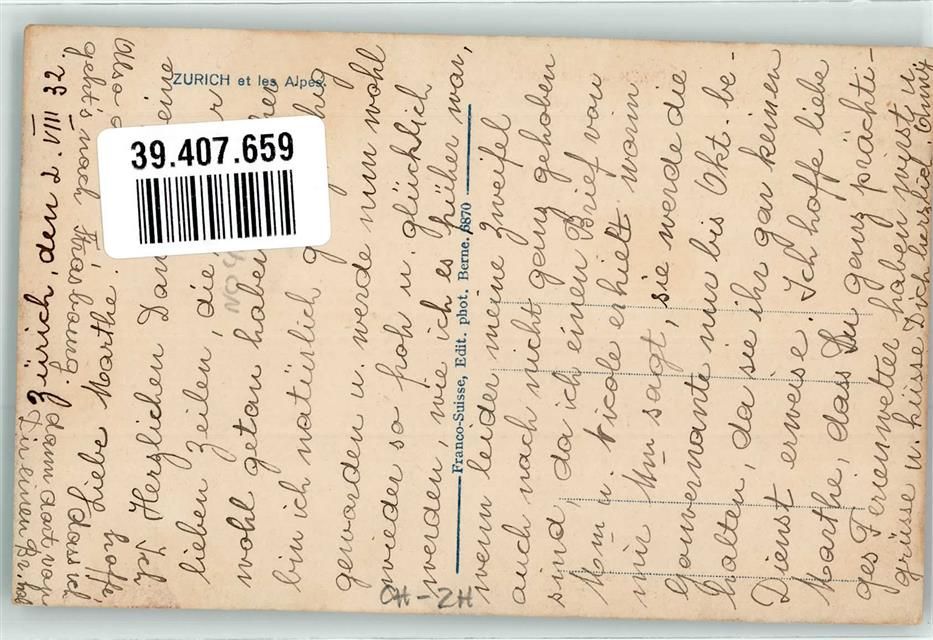 ZURICH et les Alpes.
39.407.659
Zürich, den 2. VIII 32.
Liebe Marthe!
Herzlichen Dank eine
lieben Zeilen, die
wohl getan haben
bin ich natürlich
geworden u. werde nun wohl
wieder so froh u. glücklich
werden, wie ich es früher war,
wenn leider meine Zweifel
auch noch nicht ganz gehoben
sind, da ich einen Brief von
Mm u. Nicole erhielt worin
mir Mm sagt, sie werde die
Gouvernante nur bis Okt. be-
halten, da sie ihr gar keinen
Dienst erweise. Ich hoffe liebe
Marthe, dass Du ganz prächti-
ges Ferienwetter haben wirst u.
grüsse u. küsse Dich herzlich
Ich hoffe,
dass ich
dann dort von
Dir einen Br.
Also
geht's nach Strasbourg.
Franco-Suisse, Edit. phot. Berne. 6870
CH-ZH